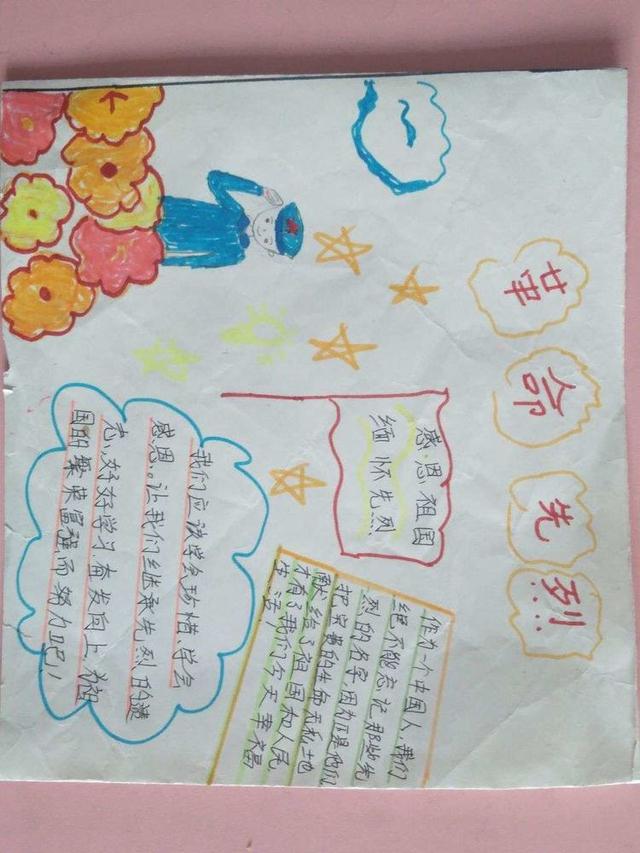 革命先烈
感恩祖国
缅怀先烈
作为一个中国人,我们
绝不能忘记那些先
烈的名字,因为正是他们
把宝贵的生命无私地
献给了祖国和人民,
才有了我们今天幸福
生活。
我们应该学会珍惜、学会
感恩。让我们继承先烈的遗
志,好好学习.奋发向上为祖
国的繁荣富强而努力吧!